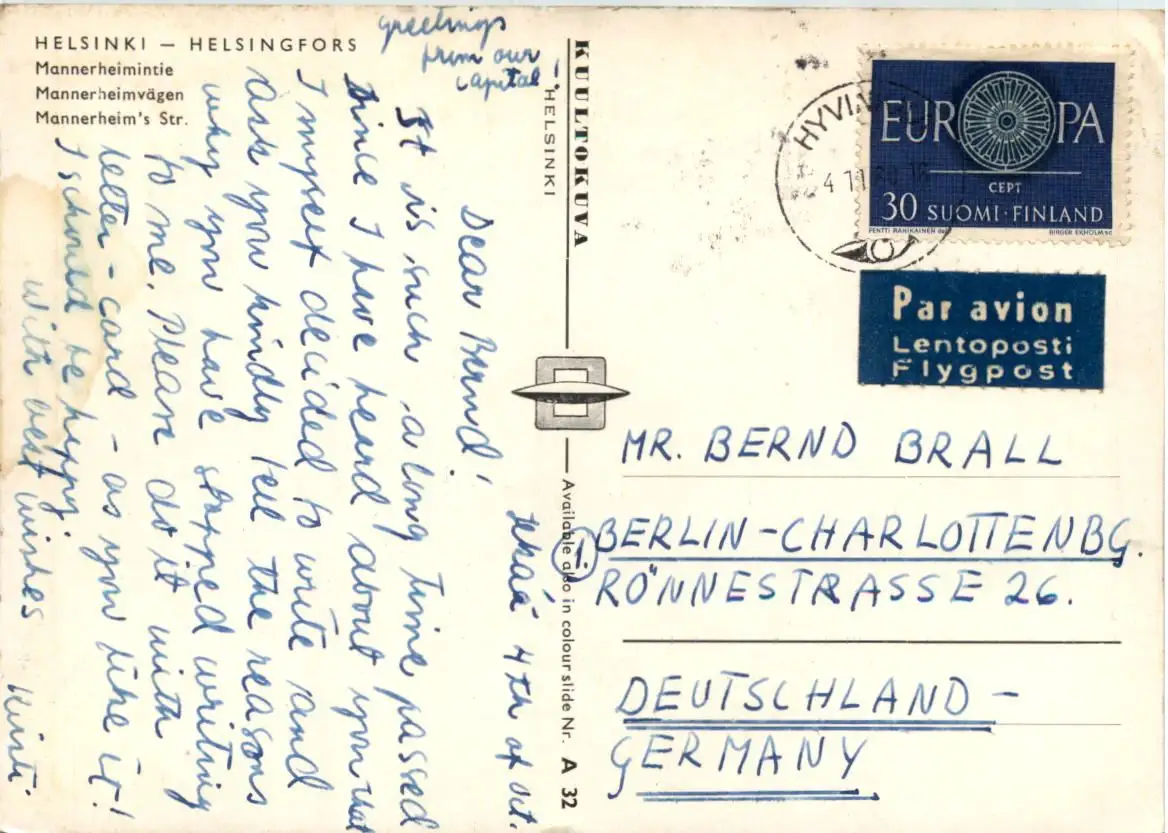 HELSINKI — HELSINGFORS
Mannerheimintie
Mannerheimvägen
Mannerheim's Str.
greetings
from our
capital!
4th of Oct.
Dear Bernd!
It is such a long time passed
since I have heerd about you that
I myself decided to write and
ask you kindly tell the reasons
why you have stopped writing
to me. Please do it with
letter-card - as you like it!
I schould be heppy.
With best wishes
Kirsti.
KUULTOKUVA
HELSINKI
Available also in colourslide Nr. A 32
HYVIN
4.11
EUROPA
CEPT
30 SUOMI·FINLAND
PENTTI RAHIKAINEN del
BIRGER EKHOLM sc
Par avion
Lentoposti
Flygpost
MR. BERND BRALL
BERLIN-CHARLOTTENBG.
RÖNNESTRASSE 26.
DEUTSCHLAND -
GERMANY